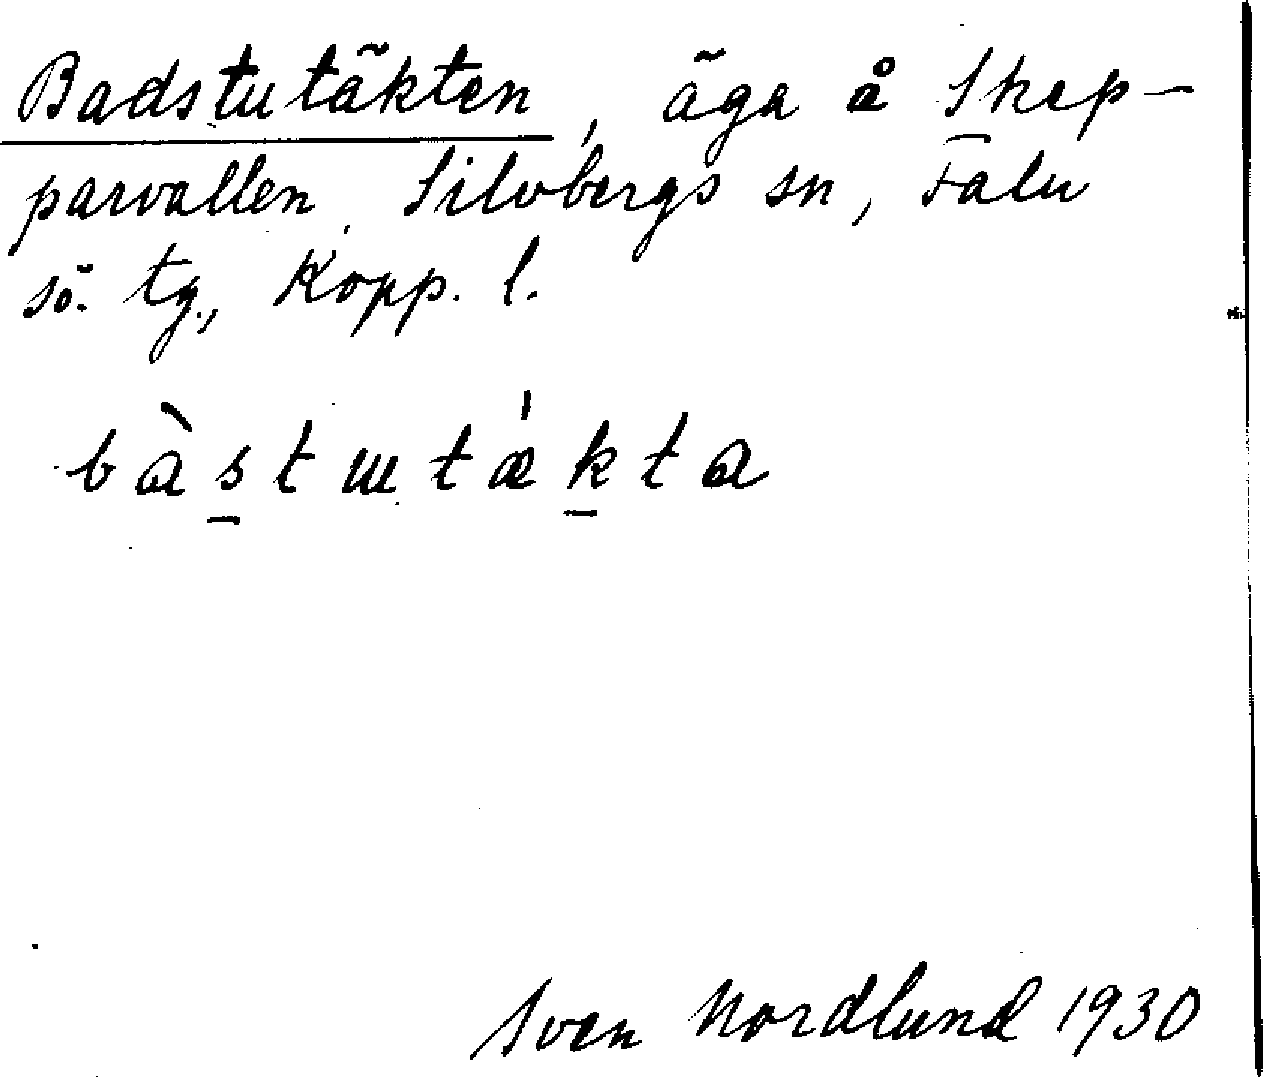 Badstutäkten, äga å Skep-
parvallen, Silvbergs sn, Falu
sö. tg., Kopp. l.
bàs̱tɯtǽḵta
Sven Nordlund 1930